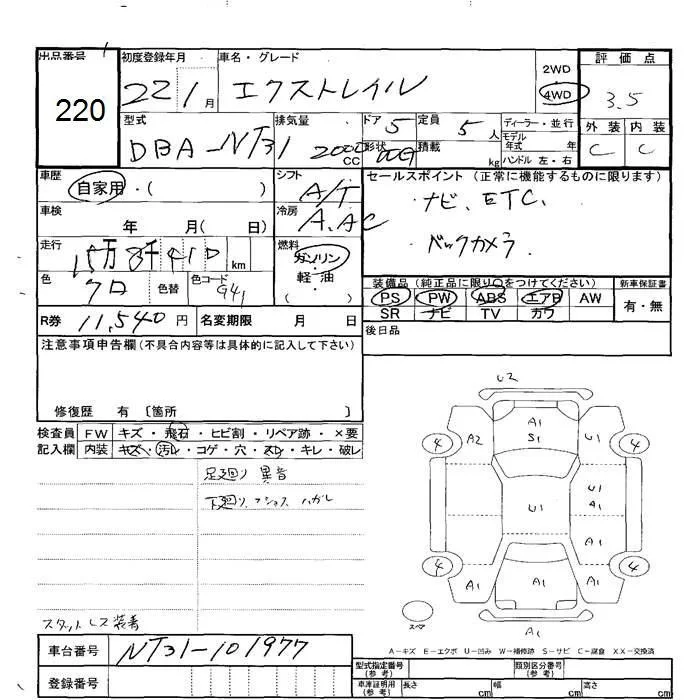 出品番号 初度登録年月 車名・グレード 2WD 評価点
220 22 1月 エクストレイル 4WD 3.5
型式 排気量 ドア 5 定員 5人 ディーラー・並行 外装 内装
DBA-NT31 2000CC 形状 積載 kg モデル年式 年 C C
ハンドル 左・右
車歴 シフト セールスポイント (正常に機能するものに限ります)
自家用・( ) A/T ・ナビ、ETC、
車検 年 月( 日) 冷房 A.AC ・バックカメラ
走行 15万8千410km 燃料 ガソリン・軽・油
色 クロ 色替 色コード G41
装備品 (純正品に限り○をつけてください) 新車保証書
PS PW ABS エアB AW 有・無
SR ナビ TV カワ
R券 11,540円 名変期限 月 日 後日品
注意事項申告欄(不具合内容等は具体的に記入して下さい)
修復歴 有 〔箇所 〕
検査員 FW キズ・飛石・ヒビ割・リペア跡・×要
記入欄 内装 キズ・汚レ・コゲ・穴・スレ・キレ・破レ
足廻り 異音
下廻り
U2
A1
S1
A2 U1
4 4
U1
A1
U1
A1
4 4
A1 A1 A1
スペア
A1
スタットレス装着
A-キズ E-エクボ U-凹み W-補修跡 S-サビ C-腐食 XX-交換済
車台番号 NT31-101977
登録番号
型式指定番号(参考) 類別区分番号(参考)
車庫証明用(参考) 長さ cm 幅 cm 高さ cm